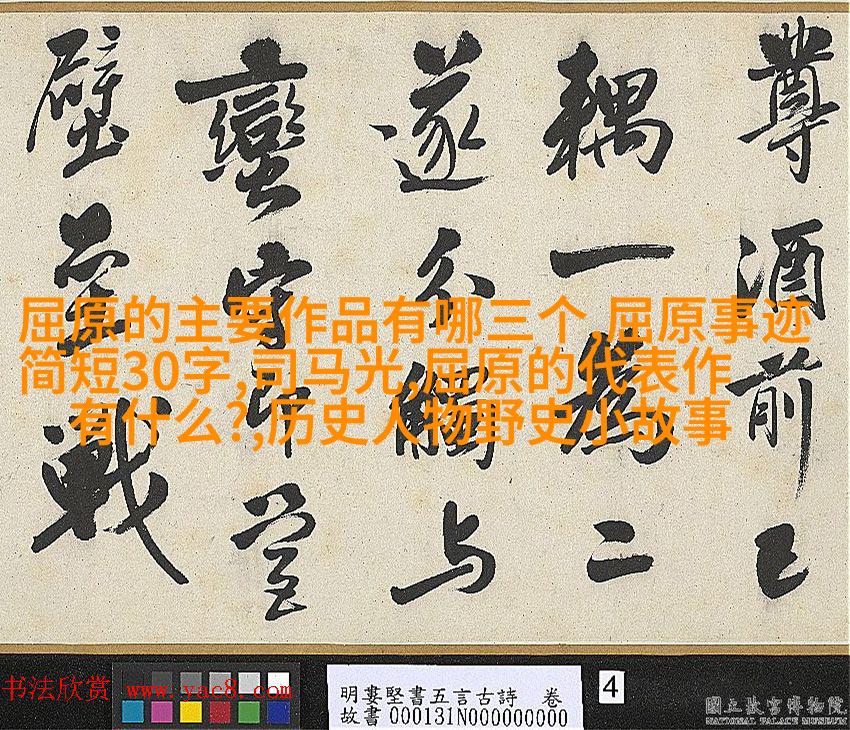 尊酒前已
耦一為二
遂分觸与
蠻守
壁戰
屈原的主要作品有哪三个,屈原事迹
简短30字,司马光,屈原的代表作
有什么?,历史人物野史小故事
书法欣赏 www.yac8.com
明婁堅書五言古詩 卷
故書000131N000000000
4
國立故宮博物院
NATIONAL PALACE MUSEUM